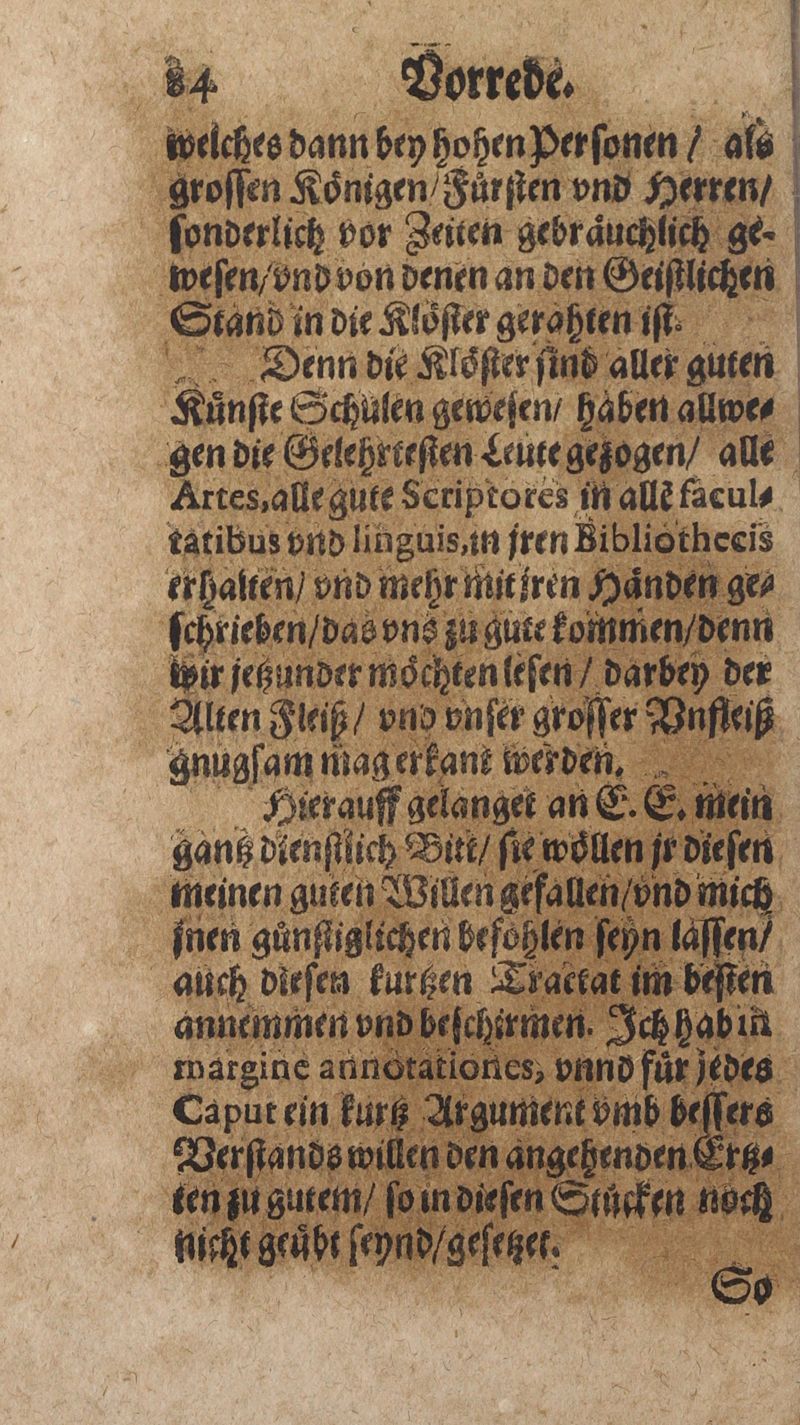 84 Vorrede.
welches dann bey hohen Perſonen / als
groſſen Koͤnigen/Fuͤrſten vnd Herren/
ſonderlich vor Zeiten gebraͤuchlich ge-
weſen/vnd von denen an den Geiſtlichen
Stand in die Kloͤſter gerahten iſt.
Denn die Kloͤſter ſind aller guten
Kuͤnſte Schulen geweſen/ haben allwe-
gen die Gelehrteſten Leute gezogen/ alle
Artes, alle gute Scriptores in allẽ facul-
tatibus vnd linguis, in jren Bibliothecis
erhalten/ vnd mehr mit jren Haͤnden ge-
ſchrieben/das vns zu gute kommen/denn
wir jetzunder moͤchten leſen / darbey der
Alten Fleiß/ vnd vnſer groſſer Vnfleiß
gnugſam mag erkant werden.
Hierauff gelanget an E. E. mein
gantz dienſtlich Bitt/ ſie woͤllen jr dieſen
meinen guten Willen gefallen/vnd mich
jnen guͤnſtiglichen befohlen ſeyn laſſen/
auch dieſen kurtzen Tractat im beſten
annemmen vnd beſchirmen. Ich hab in
margine annotationes, vnnd fuͤr jedes
Caput ein kurtz Argument vmb beſſers
Verſtands willen den angehenden Ertz-
ten zu gutem/ ſo in dieſen Stuͤcken noch
nicht geuͤbt ſeynd/geſetzet.
So